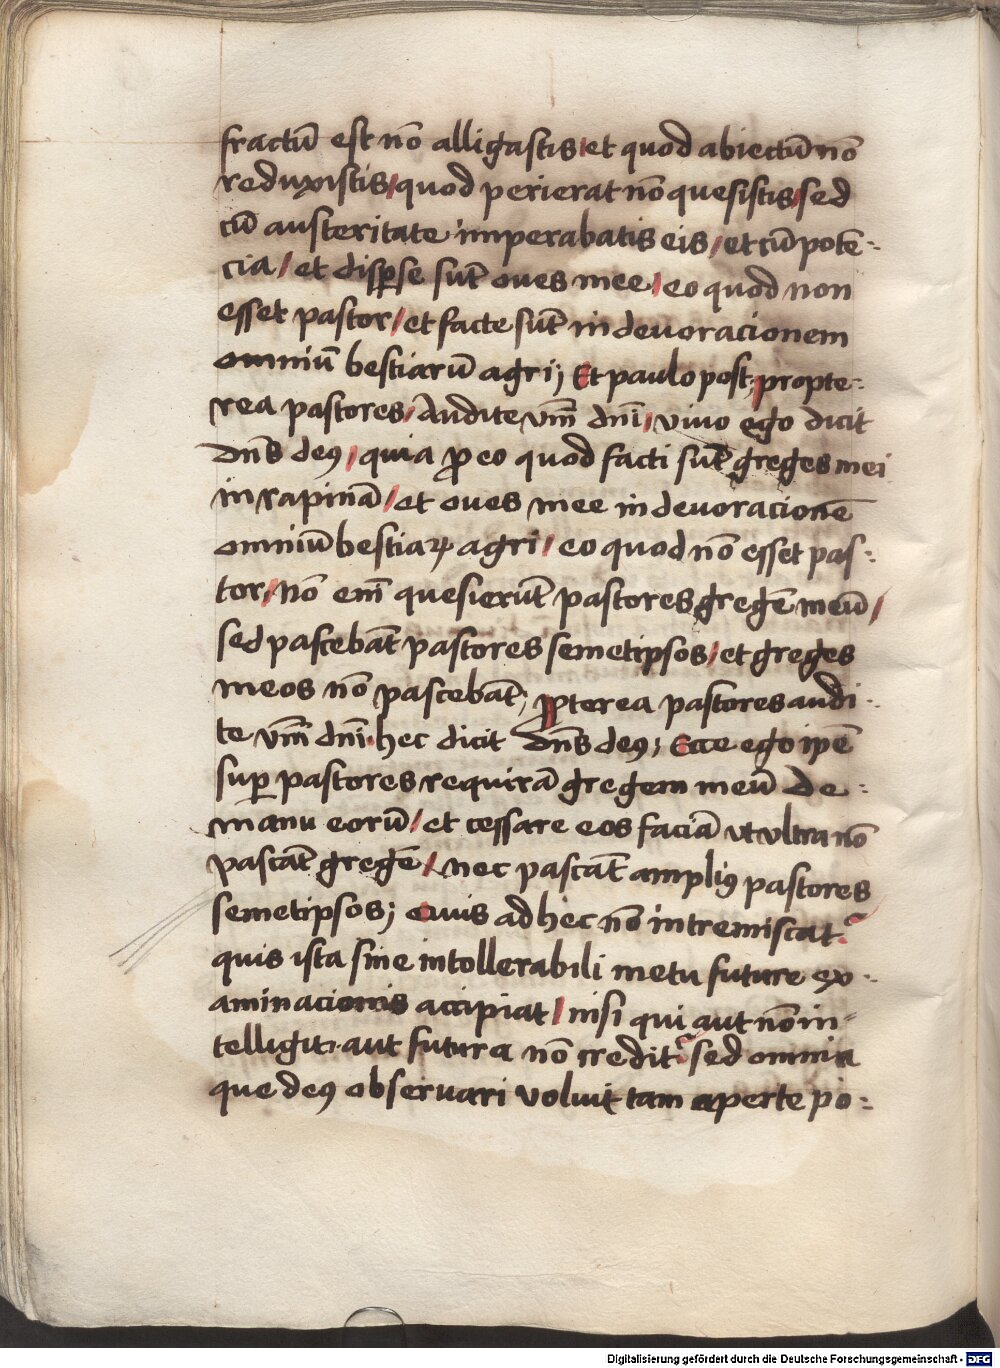 fractū est nō alligastis / et quod abiectū nō
reduxistis / quod perierat nō quesistis / sed
cū austeritate imperabatis eis / et cū potē-
cia / et disperse sūt oues mee / eo quod non
esset pastor / et facte sūt in deuoracionem
omniū bestiarū agri; Et paulo post; propte-
rea pastores / Audite v̄m dn̄i / viuo ego dicit
dn̄s deꝰ / quia ꝓ eo quod facti sūt greges mei
in rapinā / et oues mee in deuoracionē
omniū bestiaꝝ agri / eo quod nō esset pas-
tor / nō em̄ quesierūt pastores gregē meū /
sed pascebāt pastores semetipsos / et greges
meos nō pascebāt; ꝓpterea pastores audi-
te v̄m dn̄i hec dicit dn̄s deꝰ; Ecce ego ip̄e
suꝑ pastores requirā gregem meū de-
manu eorū / et cessare eos faciā vt vltra nō
pascāt gregē / nec pascāt ampliꝰ pastores
semetipsos; Quis ad hec nō intremiscat?
quis ista sine intollerabili metu future ex-
aminacionis accipiat / nisi qui aut nō in-
telligit. aut futura nō credit? sed omnia
que deꝰ obseruari voluit tam aperte po-
Digitalisierung gefördert durch die Deutsche Forschungsgemeinschaft - DFG